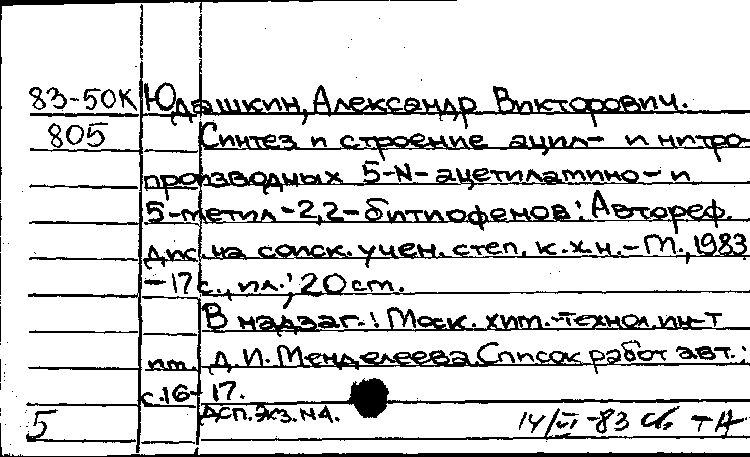 83-50К Юдашкин, Александр Викторович.
805 Синтез и строение ацил- и нитро-
производных 5-N-ацетиламино- и
5-метил-2,2-битиофенов: Автореф.
дис. на соиск. учен. степ. к.х.н. - М., 1983
- 17 с., ил.; 20 см.
В надзаг.: Моск. хим.-технол. ин-т
им. Д.И. Менделеева. Список работ авт.:
с. 16-17.
5 Дсп. Экз. N4.
14/VI-83